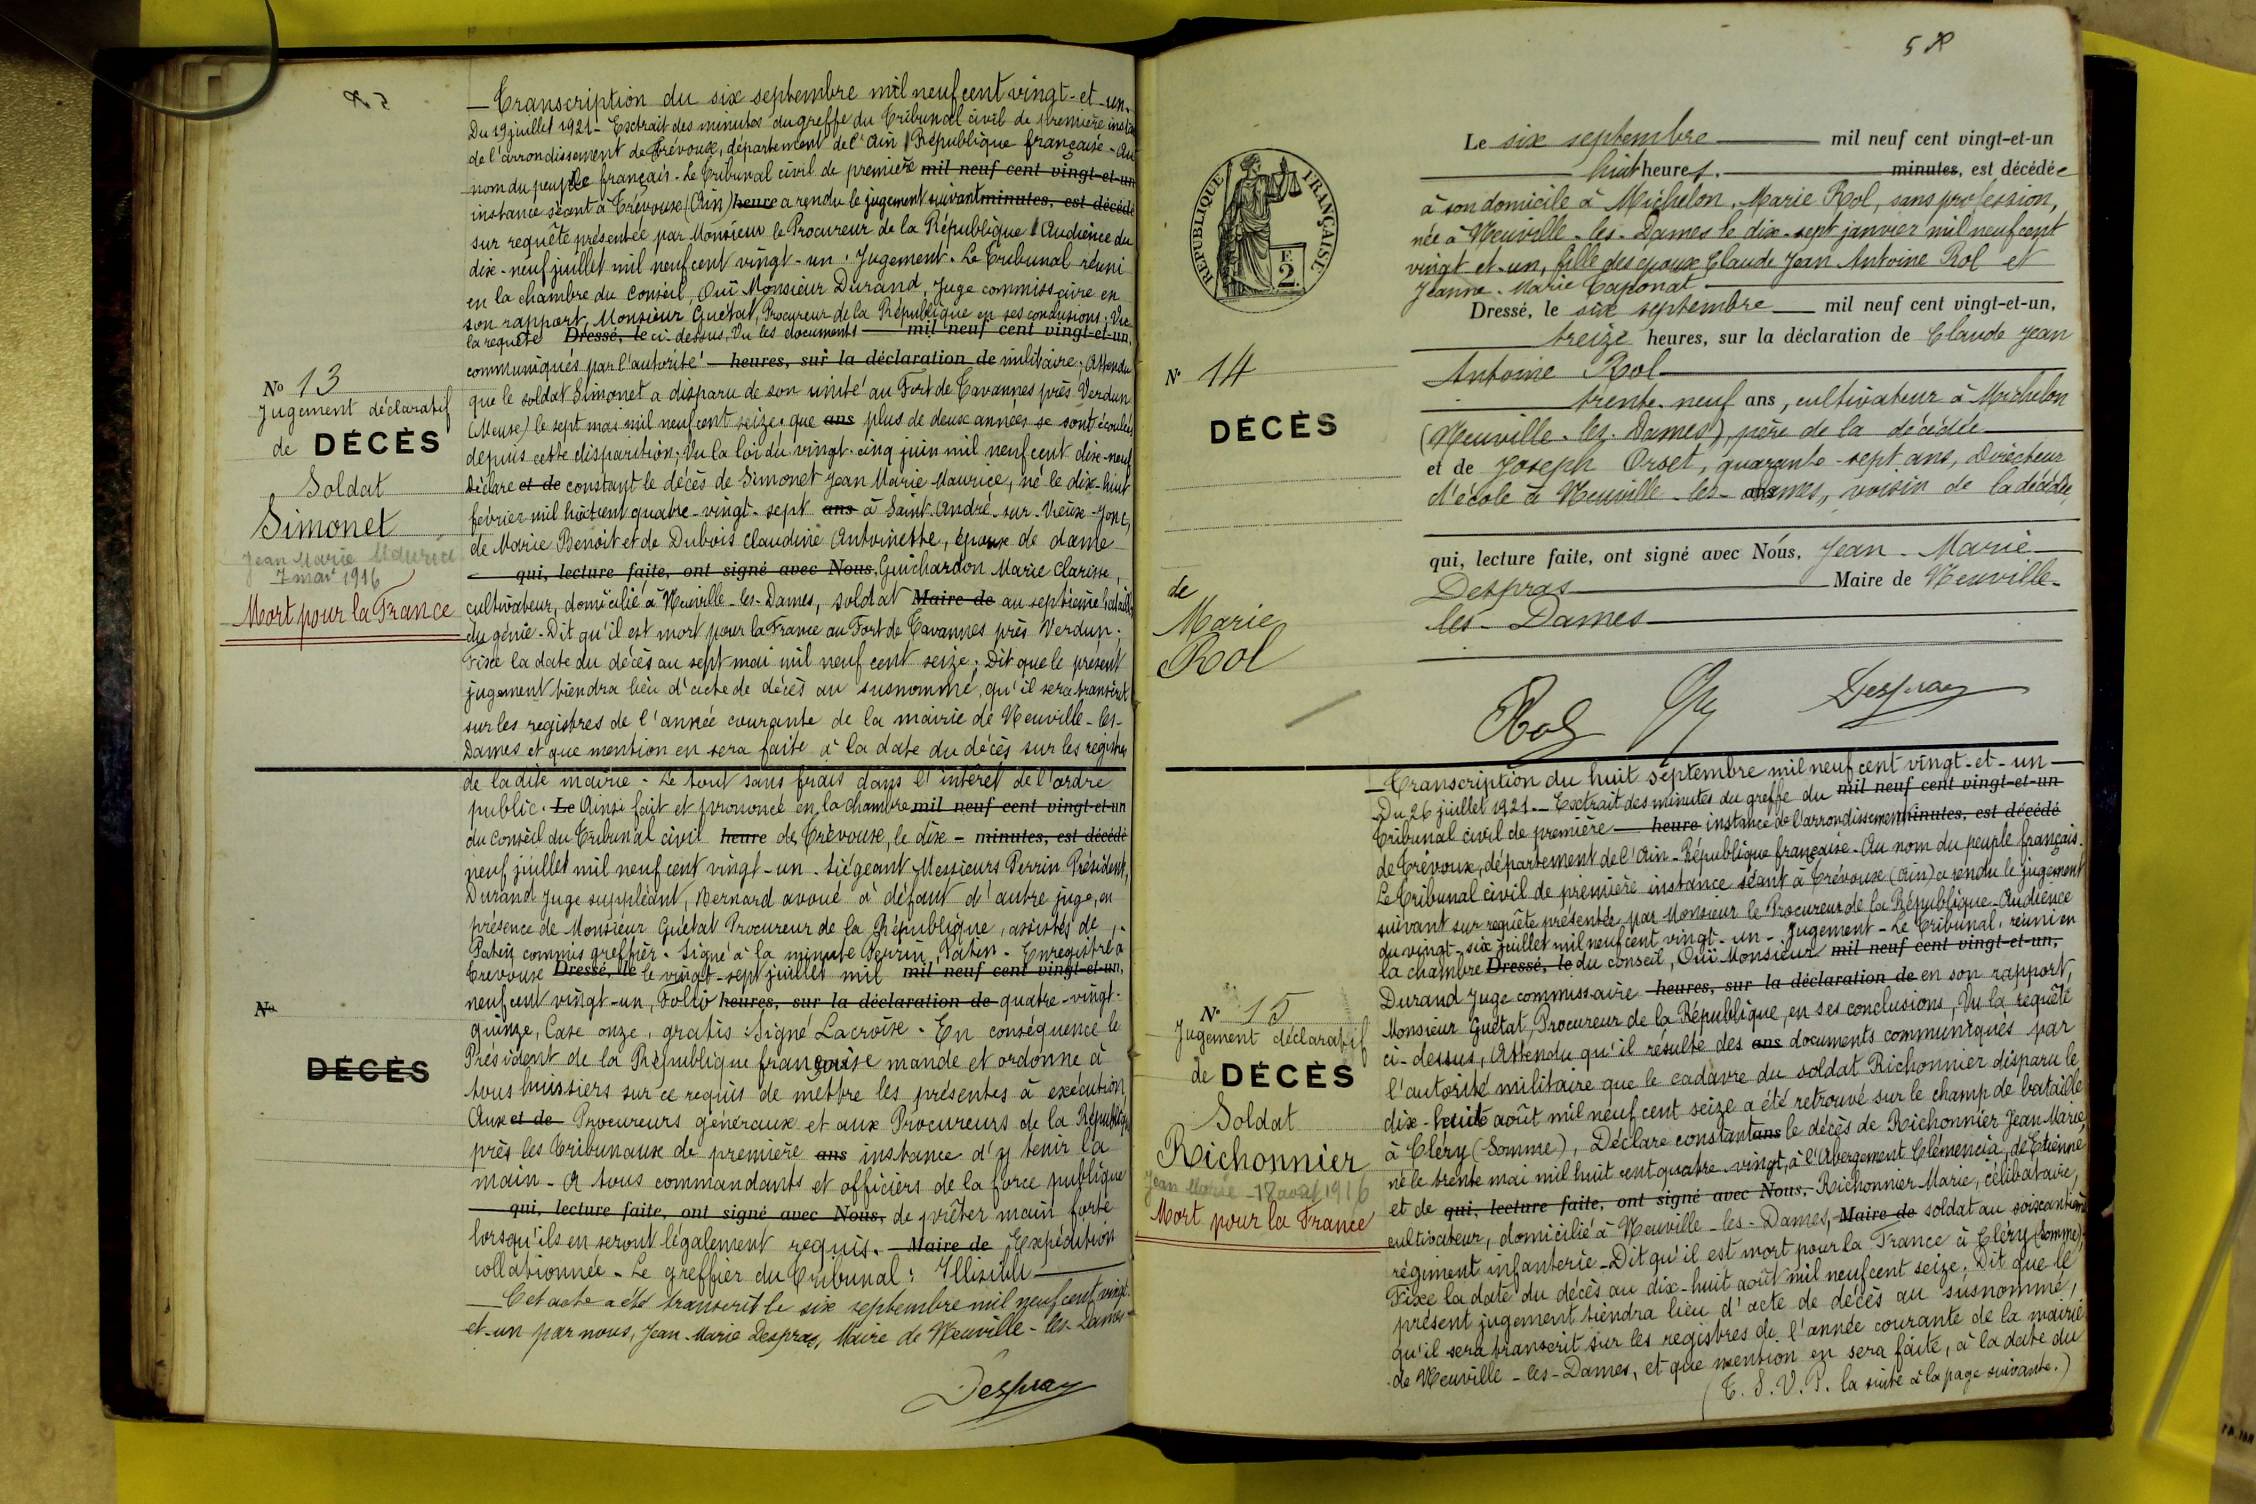 — Transcription du six septembre mil neuf cent vingt-et-un.
Du 19 juillet 1921 - Extrait des minutes du greffe du Tribunal civil de première
de l'arrondissement de Trévoux, département de l'Ain République française - Au
nom du peuple français - Le Tribunal civil de première mil neuf cent vingt-et-un
instance séant à Trévoux (Ain) heure a rendu le jugement suivant minutes, est décédé
sur requête présentée par Monsieur le Procureur de la République Audience du
dix-neuf juillet mil neuf cent vingt-un. Jugement. Le Tribunal réuni
en la chambre du Conseil, Ouï Monsieur Durand, Juge commissaire en
son rapport, Monsieur Guétat, Procureur de la République en ses conclusions; Vu
la requête Dressé, le ci-dessus, Vu les documents mil neuf cent vingt-et-un,
communiqués par l'autorité heures, sur la déclaration de militaire; Attendu
que le soldat Simonet a disparu de son unité au Fort de Tavannes près Verdun
(Meuse) le sept mai mil neuf cent seize que ans plus de deux années se sont écoulées
depuis cette disparition; Vu la loi du vingt-cinq juin mil neuf cent dix-neuf
Déclare et de constant le décès de Simonet Jean Marie Maurice, né le dix-huit
février mil huit cent quatre-vingt-sept ans à Saint-André-sur-Vieux-Jonc,
de Marie Benoit et de Dubois Claudine Antoinette, époux de dame
qui, lecture faite, ont signé avec Nous, Guichardon Marie Clarisse,
cultivateur, domicilié à Neuville-les-Dames, soldat Maire de au septième
du génie - Dit qu'il est mort pour la France au Fort de Tavannes près Verdun;
Fixe la date du décès au sept mai mil neuf cent seize; Dit que le présent
jugement tiendra lieu d'acte de décès au susnommé, qu'il sera transcrit
sur les registres de l'année courante de la mairie de Neuville-les-
Dames et que mention en sera faite à la date du décès sur les registres
de la dite mairie - Le tout sans frais dans l'intérêt de l'ordre
public. Le Ainsi fait et prononcé en la chambre mil neuf cent vingt-et-un
du Conseil du Tribunal civil heure de Trévoux, le dix- minutes, est décédé
neuf juillet mil neuf cent vingt-un. Siégeant Messieurs Perrin Président,
Durand Juge suppléant, Bernard avoué à défaut d'autre juge, en
présence de Monsieur Guétat Procureur de la République, assistés de
Patin commis greffier - Signé à la minute Perrin, Patin - Enregistré à
Trévoux Dressé, le le vingt-sept juillet mil mil neuf cent vingt-et-un,
neuf cent vingt-un, Folio heures, sur la déclaration de quatre-vingt-
quinze, Case onze, gratis Signé Lacroix - En conséquence le
Président de la République française mande et ordonne à
tous huissiers sur ce requis de mettre les présentes à exécution,
Aux et de Procureurs généraux et aux Procureurs de la République
près les Tribunaux de première ans instance d'y tenir la
main - A tous commandants et officiers de la force publique
qui, lecture faite, ont signé avec Nous, de prêter main forte
lorsqu'ils en seront légalement requis. Maire de Expédition
collationnée - Le greffier du Tribunal: Illisible
— Cet acte a été transcrit le six septembre mil neuf cent vingt-
et-un par nous, Jean-Marie Despras, Maire de Neuville-les-Dames
Despras
N° 13
Jugement déclaratif
de DÉCÈS
Soldat
Simonet
Jean Marie Maurice
7 mai 1916
Mort pour la France
N°
DÉCÈS
58
RÉPUBLIQUE FRANÇAISE
E.
2.
N° 14
DÉCÈS
de
Marie
Rol
Le six septembre mil neuf cent vingt-et-un
huit heures. minutes, est décédée
à son domicile à Michelon, Marie Rol, sans profession,
née à Neuville-les-Dames le dix-sept janvier mil neuf cent
vingt-et-un, fille des époux Claude Jean Antoine Rol et
Jeanne-Marie Taponat
Dressé, le six septembre mil neuf cent vingt-et-un,
treize heures, sur la déclaration de Claude Jean
Antoine Rol
trente-neuf ans, cultivateur à Michelon
(Neuville-les-Dames), père de la décédée
et de Joseph Orset, quarante-sept ans, Directeur
d'école à Neuville-les-Dames, voisin de la décédée,
qui, lecture faite, ont signé avec Nous, Jean-Marie
Despras Maire de Neuville-
les-Dames
Rol
Despras
N° 15
Jugement déclaratif
de DÉCÈS
Soldat
Richonnier
Jean Marie - 18 août 1916
Mort pour la France
— Transcription du huit septembre mil neuf cent vingt-et-un —
Du 26 juillet 1921. - Extrait des minutes du greffe du mil neuf cent vingt-et-un
Tribunal civil de première heure instance de l'arrondissement minutes, est décédé
de Trévoux, département de l'Ain - République française - Au nom du peuple français.
Le Tribunal civil de première instance séant à Trévoux (Ain) a rendu le jugement
suivant sur requête présentée par Monsieur le Procureur de la République - Audience
du vingt-six juillet mil neuf cent vingt-un - Jugement - Le Tribunal, réuni en
la chambre Dressé, le du conseil, Ouï Monsieur mil neuf cent vingt-et-un,
Durand Juge commissaire heures, sur la déclaration de en son rapport,
Monsieur Guétat, Procureur de la République, en ses conclusions, Vu la requête
ci-dessus, Attendu qu'il résulte des ans documents communiqués par
l'autorité militaire que le cadavre du soldat Richonnier disparu le
dix-huit août mil neuf cent seize a été retrouvé sur le champ de bataille
à Cléry (Somme), Déclare constant ans le décès de Richonnier Jean Marie,
né le trente mai mil huit cent quatre-vingt, à l'Abergement Clémencia, de Etienne
et de qui, lecture faite, ont signé avec Nous, Richonnier Marie, célibataire,
cultivateur, domicilié à Neuville-les-Dames, Maire de soldat au soixantième
régiment infanterie - Dit qu'il est mort pour la France à Cléry (Somme);
Fixe la date du décès au dix-huit août mil neuf cent seize; Dit que le
présent jugement tiendra lieu d'acte de décès au susnommé,
qu'il sera transcrit sur les registres de l'année courante de la mairie
de Neuville-les-Dames, et que mention en sera faite, à la date du
(T. S. V. P. la suite à la page suivante.)